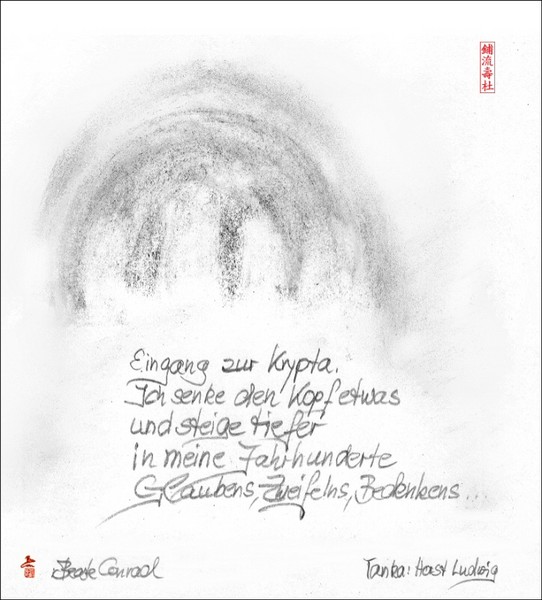 鋪流壽杜
Eingang zur Krypta.
Ich senke den Kopf etwas
und steige tiefer
in meine Jahrhunderte
Glaubens, Zweifelns, Bedenkens...
Beate Conrad
Tanka: Horst Ludwig